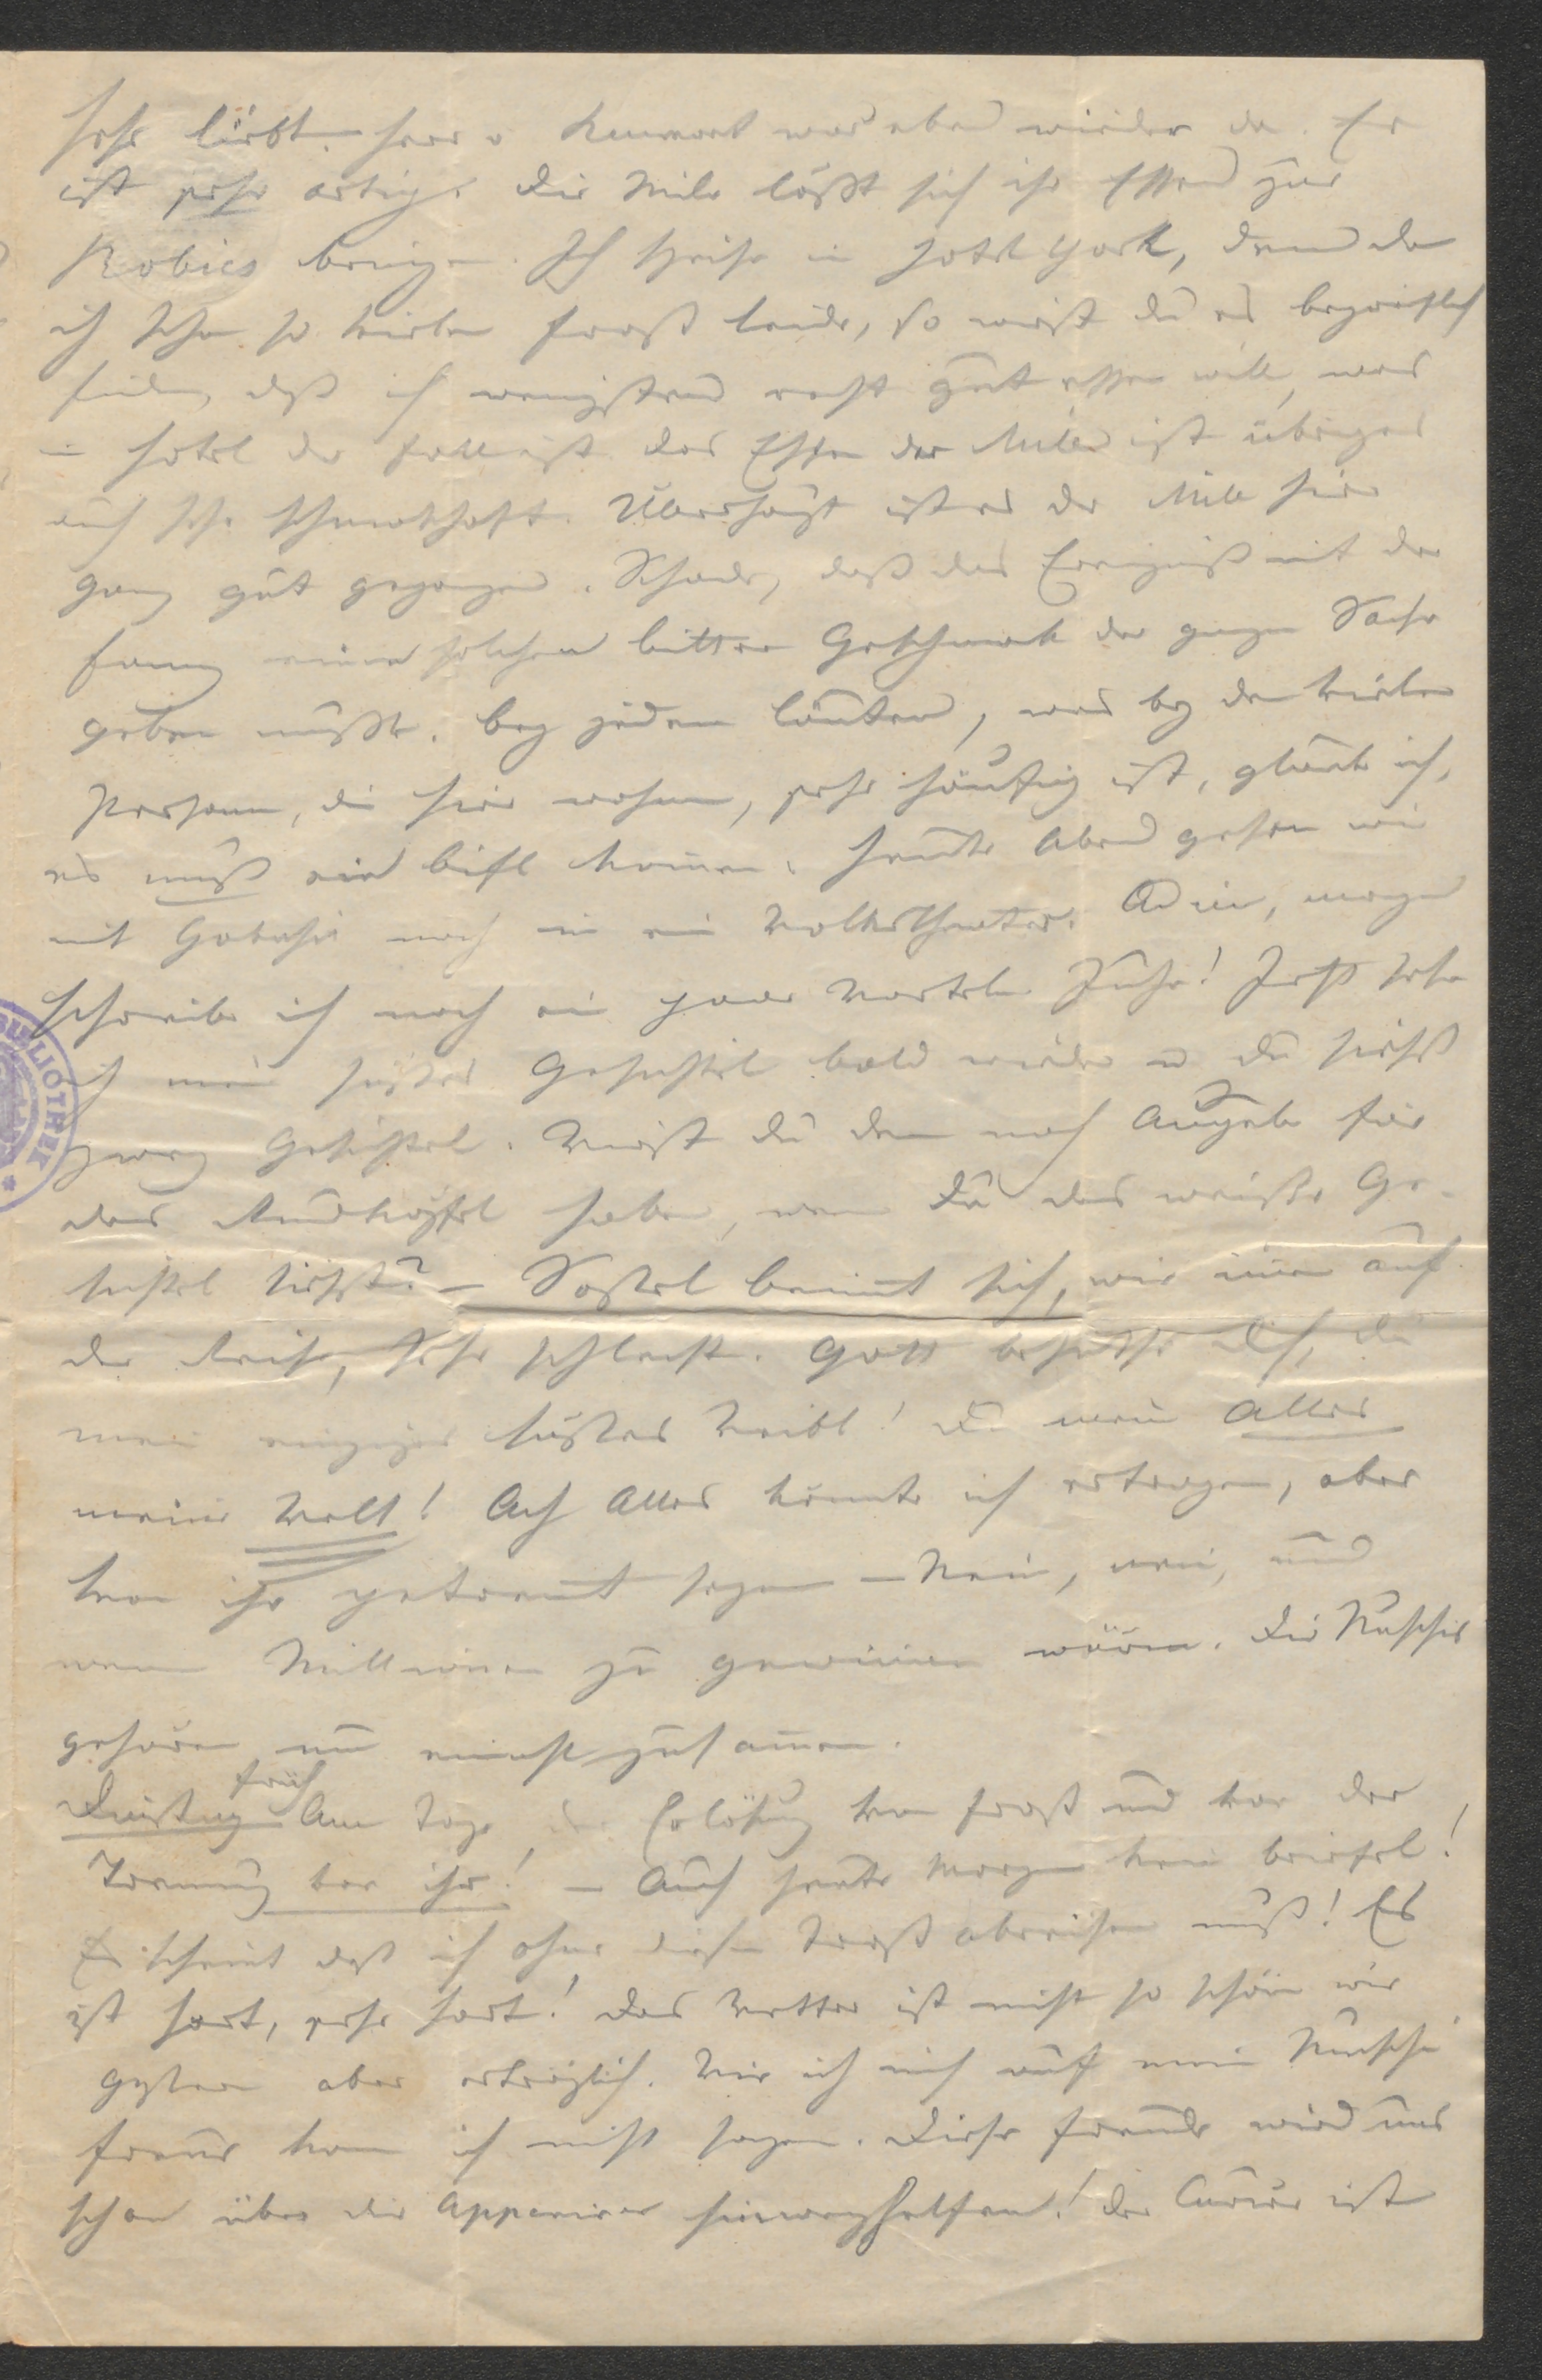 sehr liebt. Herr v Reumont war eben wieder da. Er
ist sehr artig. Die Mila läßt sich ihr Essen zur
Kobics bringen. Ich speise in Hotel York, denn da
ich schon so vielen Frost leide, so wirst du es begreiflich
finden, daß ich wenigstens recht gut essen will, was
in Hotel der Fall ist. Das Essen der Mila ist übrigens
auch sehr schmackhaft. Überhaupt ist es der Mila hier
ganz gut gegangen. Schade, daß das Ereigniß mit der
Fanny einen solchen bittren Geschmack der ganzen Sache
geben mußte. Bey jedem Läuten, was bey den vielen
Personen, die hier wohnen, sehr häufig ist, glaub ich,
es muß ein bisl kommen. Heute Abend gehen wir
mit noch in ein Volkstheater. Adieu, morgen
schreibe ich noch ein paar Wortele Juhe! Jetzt sehe
ich mein süßes Gesichtel bald wieder u du siehst
zwey Gesichtel. Wirst du denn noch Augele für
das haben, wenn Du das weiße Ge-
sichtel siehst? — benimt sich, wie immer auf
der Reise, sehr schlecht. Gott beschütze dich, du
mein einziges süßes Weibl! Du mein Alles
meine Welt! Ach Alles könnte ich ertragen, aber
von ihr getrennt seyn — Nein, nein, und
wenn Millionen zu gewinnen wären. Die Nuschis
gehören nun einmahl zusammen.
Dienstag früh Am Tage der Erlösung von Frost und von der
Trennung von ihr! — Auch heute Morgen kein briefel!
Es scheint daß ich ohne diesen Trost abreisen muß! Es
ist hart, sehr hart! Das Wetter ist nicht so schön wie
gestern aber erträglich. Wie ich mich auf mein Nuschi
freue kann ich nicht sagen. Diese Freude wird uns
schon über die Appeninen hinweghelfen! Der Curier ist